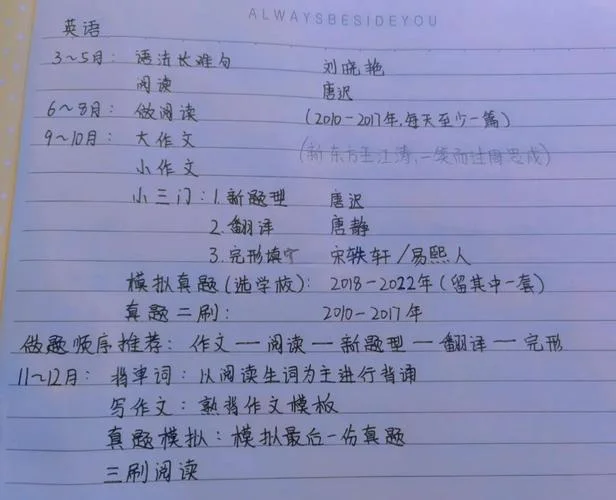 ALWAYSBESIDEYOU
英语
3~5月: 语法长难句 刘晓艳
阅读 唐迟
6~8月: 做阅读 (2010-2017年,每天至少一篇)
9~10月: 大作文 (新东方王江涛,一笑而过周思成)
小作文
小三门: 1.新题型 唐迟
2.翻译 唐静
3.完形填空 宋轶轩/易熙人
模拟真题(选学校): 2018-2022年(留其中一套)
真题二刷: 2010-2017年
做题顺序推荐: 作文—阅读—新题型—翻译—完形
11~12月: 背单词: 以阅读生词为主进行背诵
写作文: 熟背作文模板
真题模拟: 模拟最后一份真题
三刷阅读